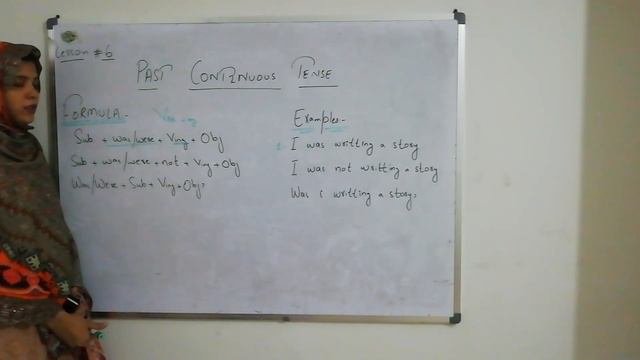 Lesson # 6
PAST CONTINUOUS TENSE
FORMULA-
Sub + was/were + Ving + Obj
Sub + was/were + not + Ving + Obj
Was/Were + Sub + Ving + Obj?
Examples-
I was writting a story
I was not writting a story
Was i writting a story?